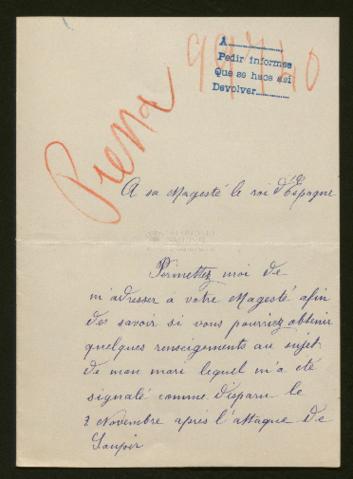 A
Pedir informes
Que se hace así
Devolver
A sa Magesté le roi d'Espagne
Permettez moi de
m'adresser à votre Magesté afin
de savoir si vous pourriez obtenir
quelques renseignements au sujet
de mon mari lequel m'a été
signalé comme disparu le
2 Novembre après l'attaque de
Soupir